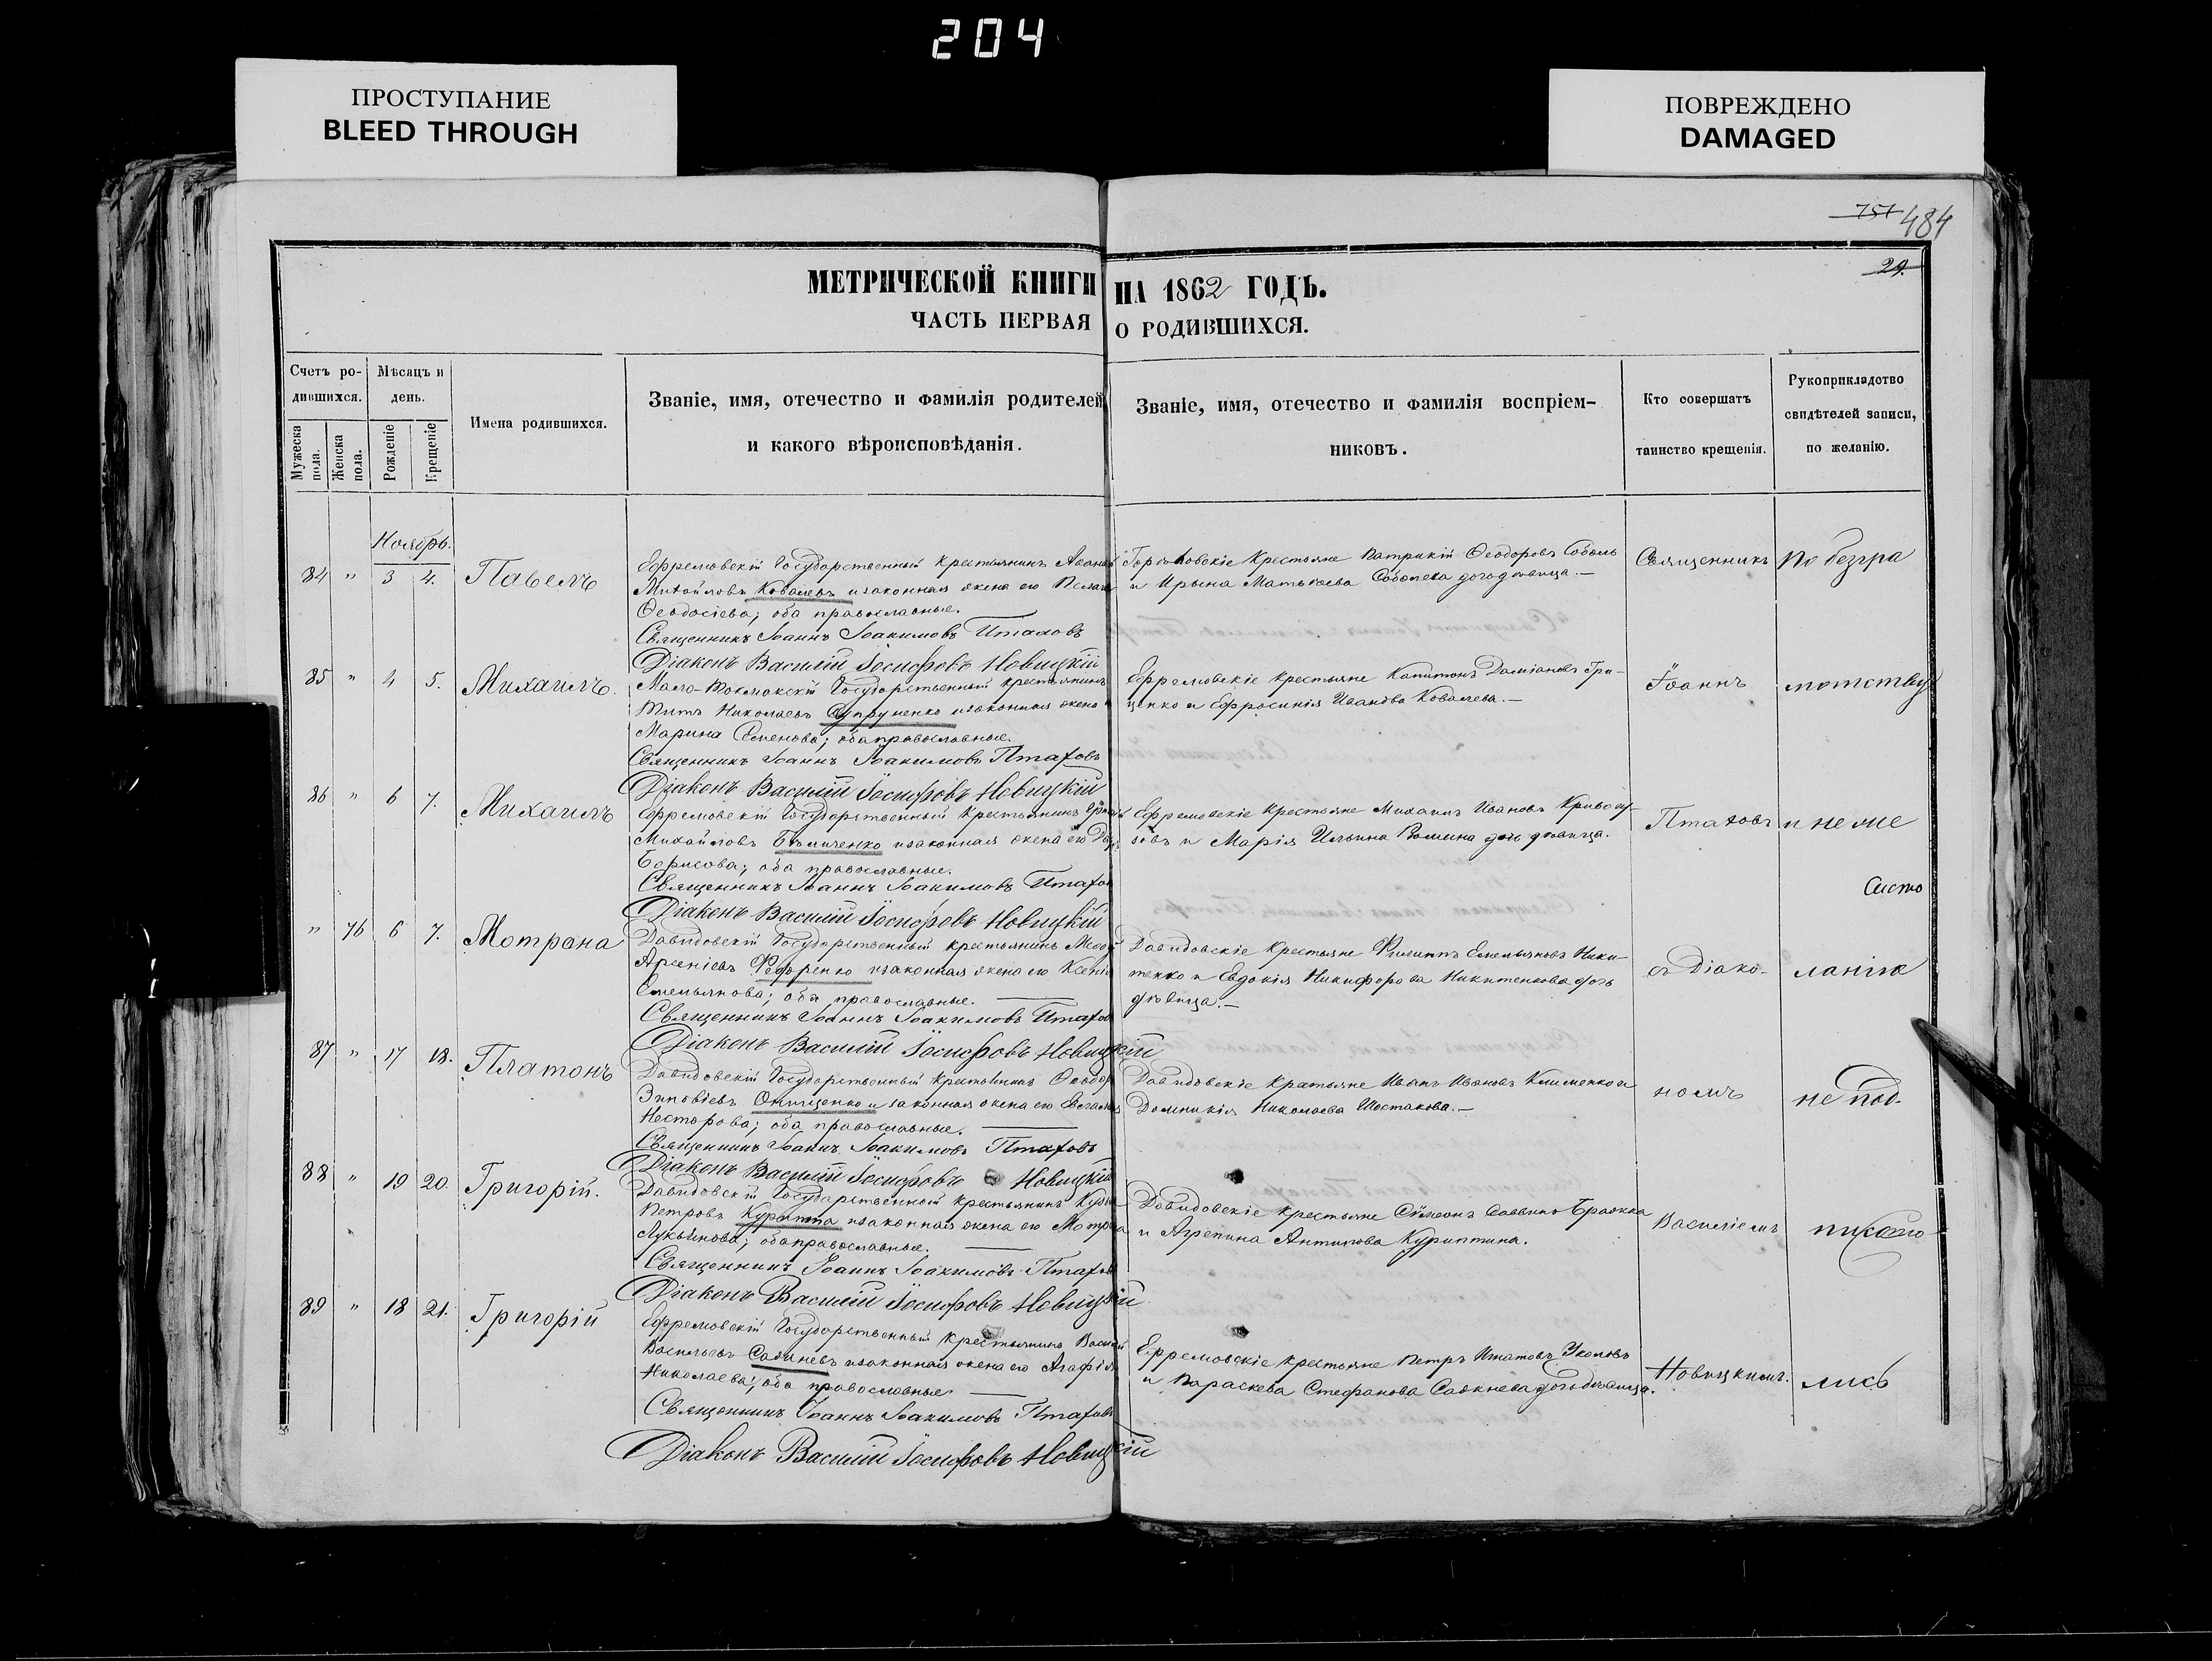 204
ПРОСТУПАНИЕ
BLEED THROUGH
ПОВРЕЖДЕНО
DAMAGED
751 484
29.
МЕТРИЧЕСКОЙ КНИГИ НА 1862 ГОДЪ.
ЧАСТЬ ПЕРВАЯ О РОДИВШИХСЯ.
Счетъ ро-
дившихся.
Мужеска пола.
Женска пола.
Мѣсяцъ и
день.
Рожденіе
Крещеніе
Имена родившихся.
Званіе, имя, отечество и фамилія родителей
и какого вѣроисповѣданія.
Званіе, имя, отечество и фамилія воспріем-
никовъ.
Кто совершатъ
таинство крещенія.
Рукоприкладство
свидѣтелей записи,
по желанію.
Ноябрь.
84 " 3 4. Павелъ
Ефремовскій Государственный крестьянинъ
Михайловъ Ковалевъ и законная жена его
Ѳеодосіева; оба православные.
Священникъ Іоаннъ Іоакимовъ Птаховъ
Діаконъ Василій Іосифовъ Новицкій
крестьяне Патрикій Ѳеодоровъ Соболь
и Ирина Матвѣева Соболева дочь дѣвица.—
Священникъ
По безгра
85 " 4 5. Михаилъ.
Мало-Токмакскій Государственный крестьянинъ
Титъ Николаевъ Супруненко и законная жена
Марина Семенова; оба православные.
Священникъ Іоаннъ Іоакимовъ Птаховъ
Діаконъ Василій Іосифовъ Новицкій
Ефремовскіе крестьяне Капитонъ Даміановъ Гри-
ценко и Ефросинія Иванова Ковалева.—
Іоаннъ
мотству
86 " 6 7. Михаилъ
Ефремовскій Государственный крестьянинъ
Михайловъ и законная жена его
Борисова; оба православные.
Священникъ Іоаннъ Іоакимовъ Птахов
Діаконъ Василій Іосифовъ Новицкій
Ефремовскіе крестьяне Михаилъ Ивановъ
и Марія Ильина дѣвица.
Птаховъ
и неме
Систо
" 76 6 7. Мотрона
Давидовскій Государственный крестьянинъ
Арсеніевъ Федоренко и законная жена его Ксенія
Емельянова; оба православные.
Священникъ Іоаннъ Іоакимовъ Птахов
Діаконъ Василій Іосифовъ Новицкій
Давидовскіе крестьяне Филиппъ Емельяновъ Ники-
тенко и Евдокія Никифорова Никитенкова дочь
дѣвица.—
съ Діако-
ланію
87 " 17 18. Платонъ
Давидовскій Государственный крестьянинъ Ѳеодор
Зиновіевъ Онищенко и законная жена его
Несторова; оба православные.
Священникъ Іоаннъ Іоакимовъ Птаховъ
Діаконъ Василій Іосифовъ Новицкій
Давидовскіе крестьяне Иванъ Ивановъ Клименко и
Домникія Николаева Шостакова.—
номъ
не под-
88 " 19 20. Григорій.
Давидовскій Государственный крестьянинъ
Петровъ Курипта и законная жена его
Лукьянова; оба православные.
Священникъ Іоаннъ Іоакимовъ Птахов
Діаконъ Василій Іосифовъ Новицкій
Давидовскіе крестьяне Симеонъ Саввинъ
и Агрепина Антипова Куриптина.
Василіемъ
писа
89 " 18 21. Григорій
Ефремовскій Государственный крестьянинъ Василій
Васильевъ и законная жена его Агафія
Николаева; оба православные
Священникъ Іоаннъ Іоакимовъ Птаховъ
Діаконъ Василій Іосифовъ Новицкій
Ефремовскіе крестьяне Петръ
и Параскева Стефанова дочь дѣвица.
Новицкимъ.
лись